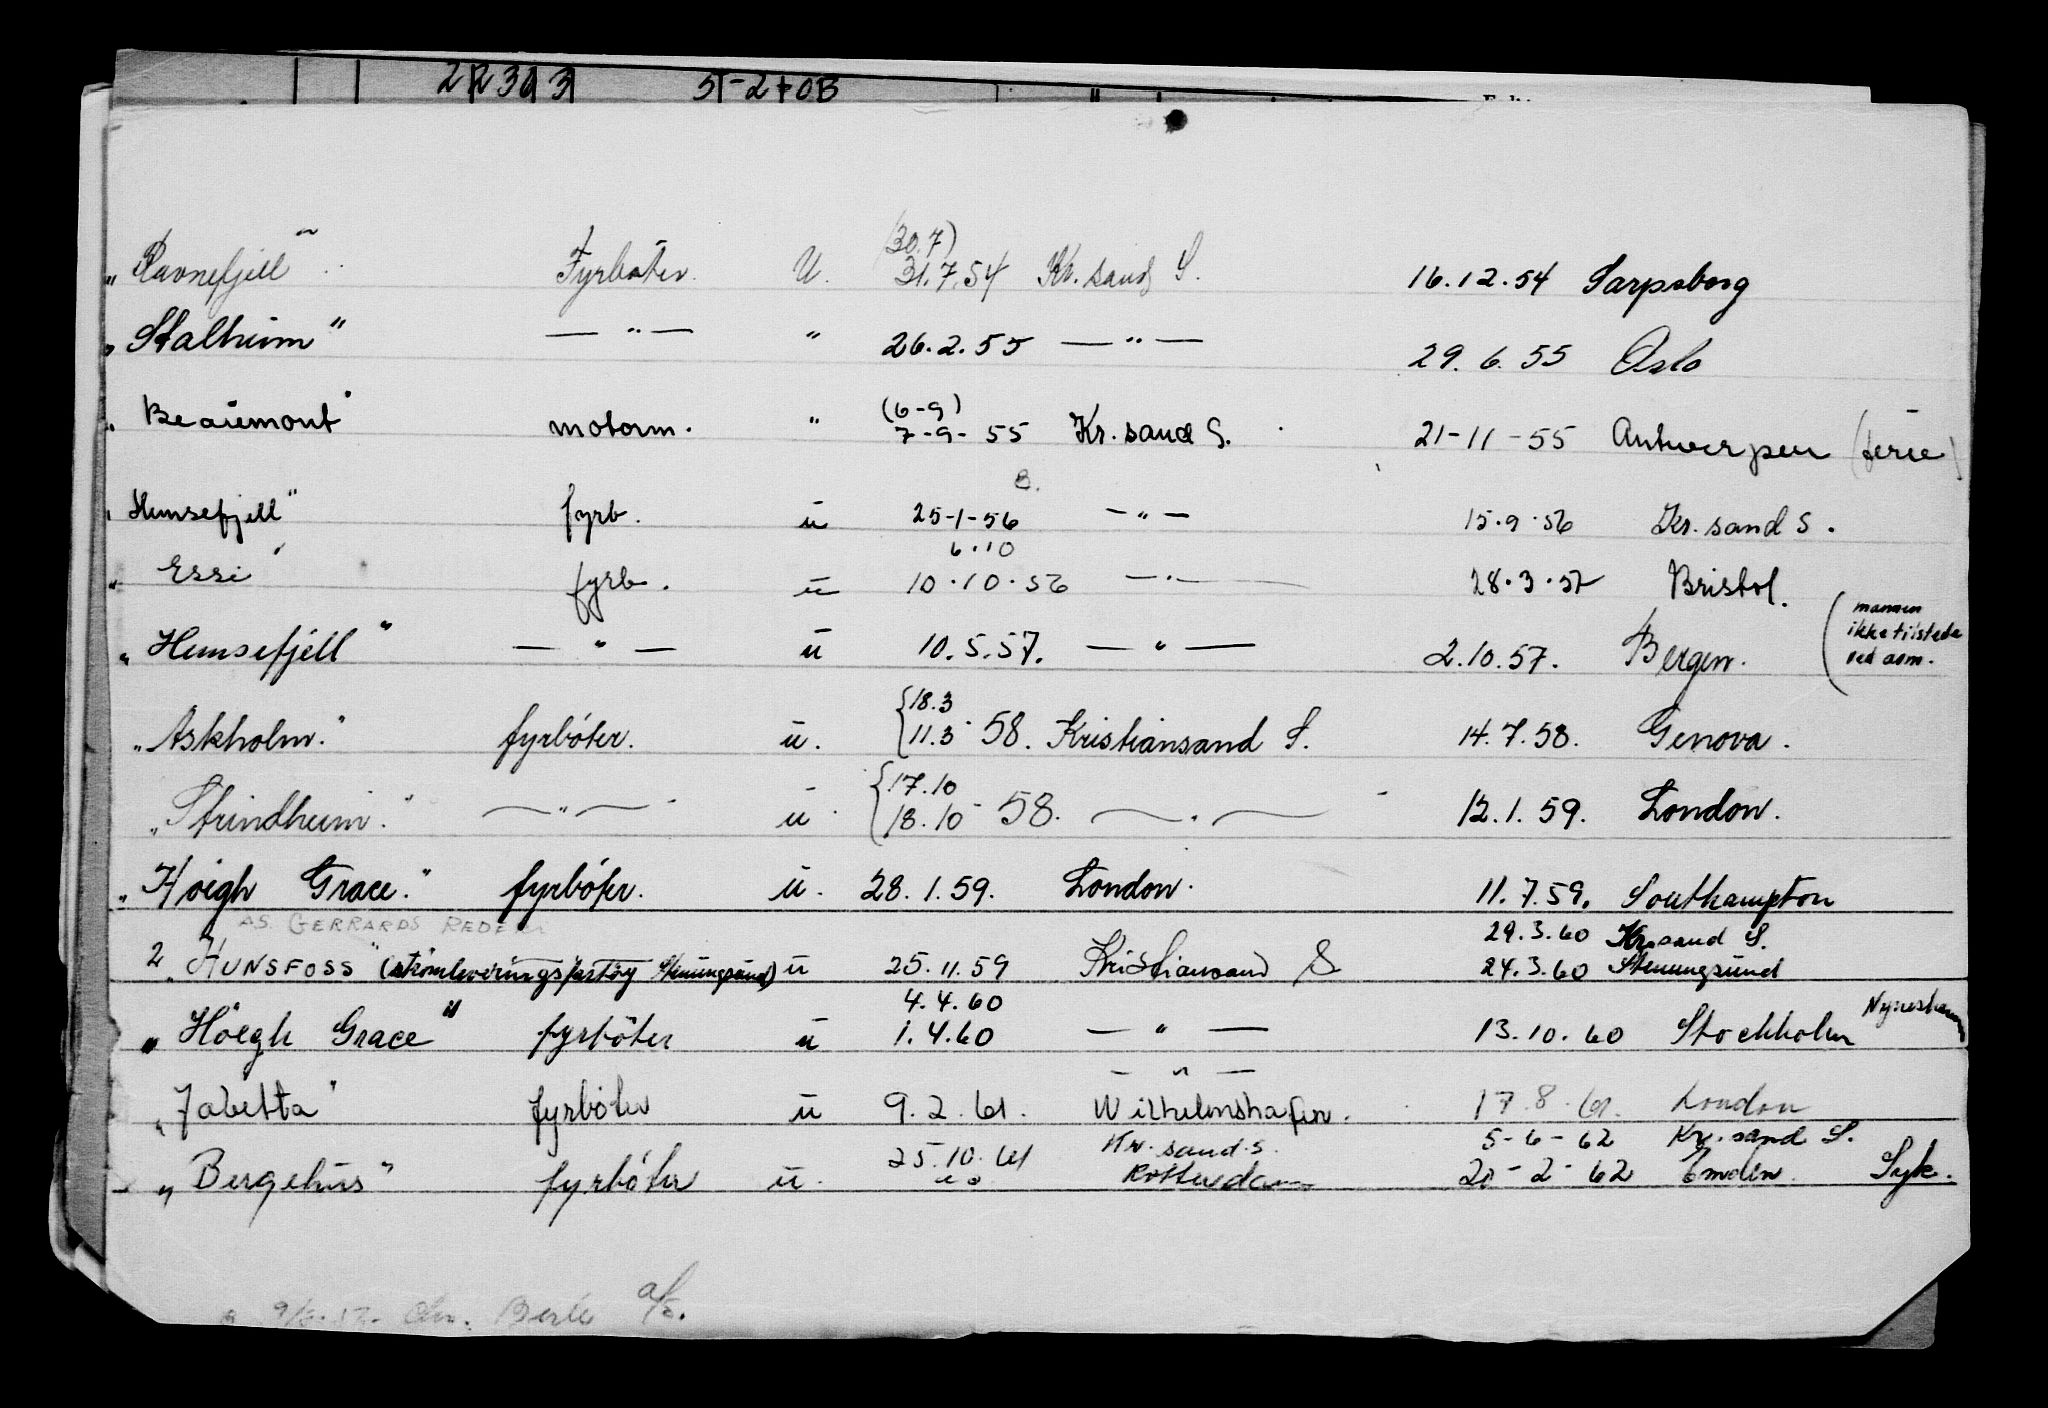 22303 5-2+0B
(30.7)
"Ravnefjell" Fyrbøter. U. 31.7.54 Kr.sand S. 16.12.54 Sarpsborg
"Stalheim" — " — " 26.2.55 — " — 29.6.55 Oslo
(6-9)
"Beaumont" motorm. " 7-9-55 Kr.sand S. 21-11-55 Antwerpen (ferie)
8.
"Hemsefjell" fyrb. u 25-1-56 — " — 15.9.56 Kr.sand S.
6.10
"Essi" fyrb. u 10.10.56 — " — 28.3.57 Bristol.
"Hemsefjell" — " — u 10.5.57. — " — 2.10.57. Bergen. (mannen
ikke tilstede
ved avm.
{18.3
"Askholm." fyrbóter. u. 11.3-58. Kristiansand S. 14.7.58. Genova.
{17.10
"Strindheim." — " — u. 18.10-58. — " — 12.1.59. London.
"Höigh Grace." fyrbóter. u. 28.1.59. London. 11.7.59. Southampton
AS. GERRARDS REDERI
29.3.60 Kr.sand S.
2 "HUNSFOSS" (strömleveringsfartöy Stenungsund) u 25.11.59 Kristiansand S 24.3.60 Stenungsund
4.4.60
"Höegh Grace" fyrböter u 1.4.60 — " — 13.10.60 Stockholm Nyneshamn
— " —
"Jabetta" fyrbóter u 9.2.61. Wilhelmshafen. 17.8.61. London
25.10.61 Kr.sand.S. 5-6-62 Kr.sand S.
"Bergehus" fyrbóter u. Rotterdam 20-2-62 Emden. Syk.
9/ Berle a/s.